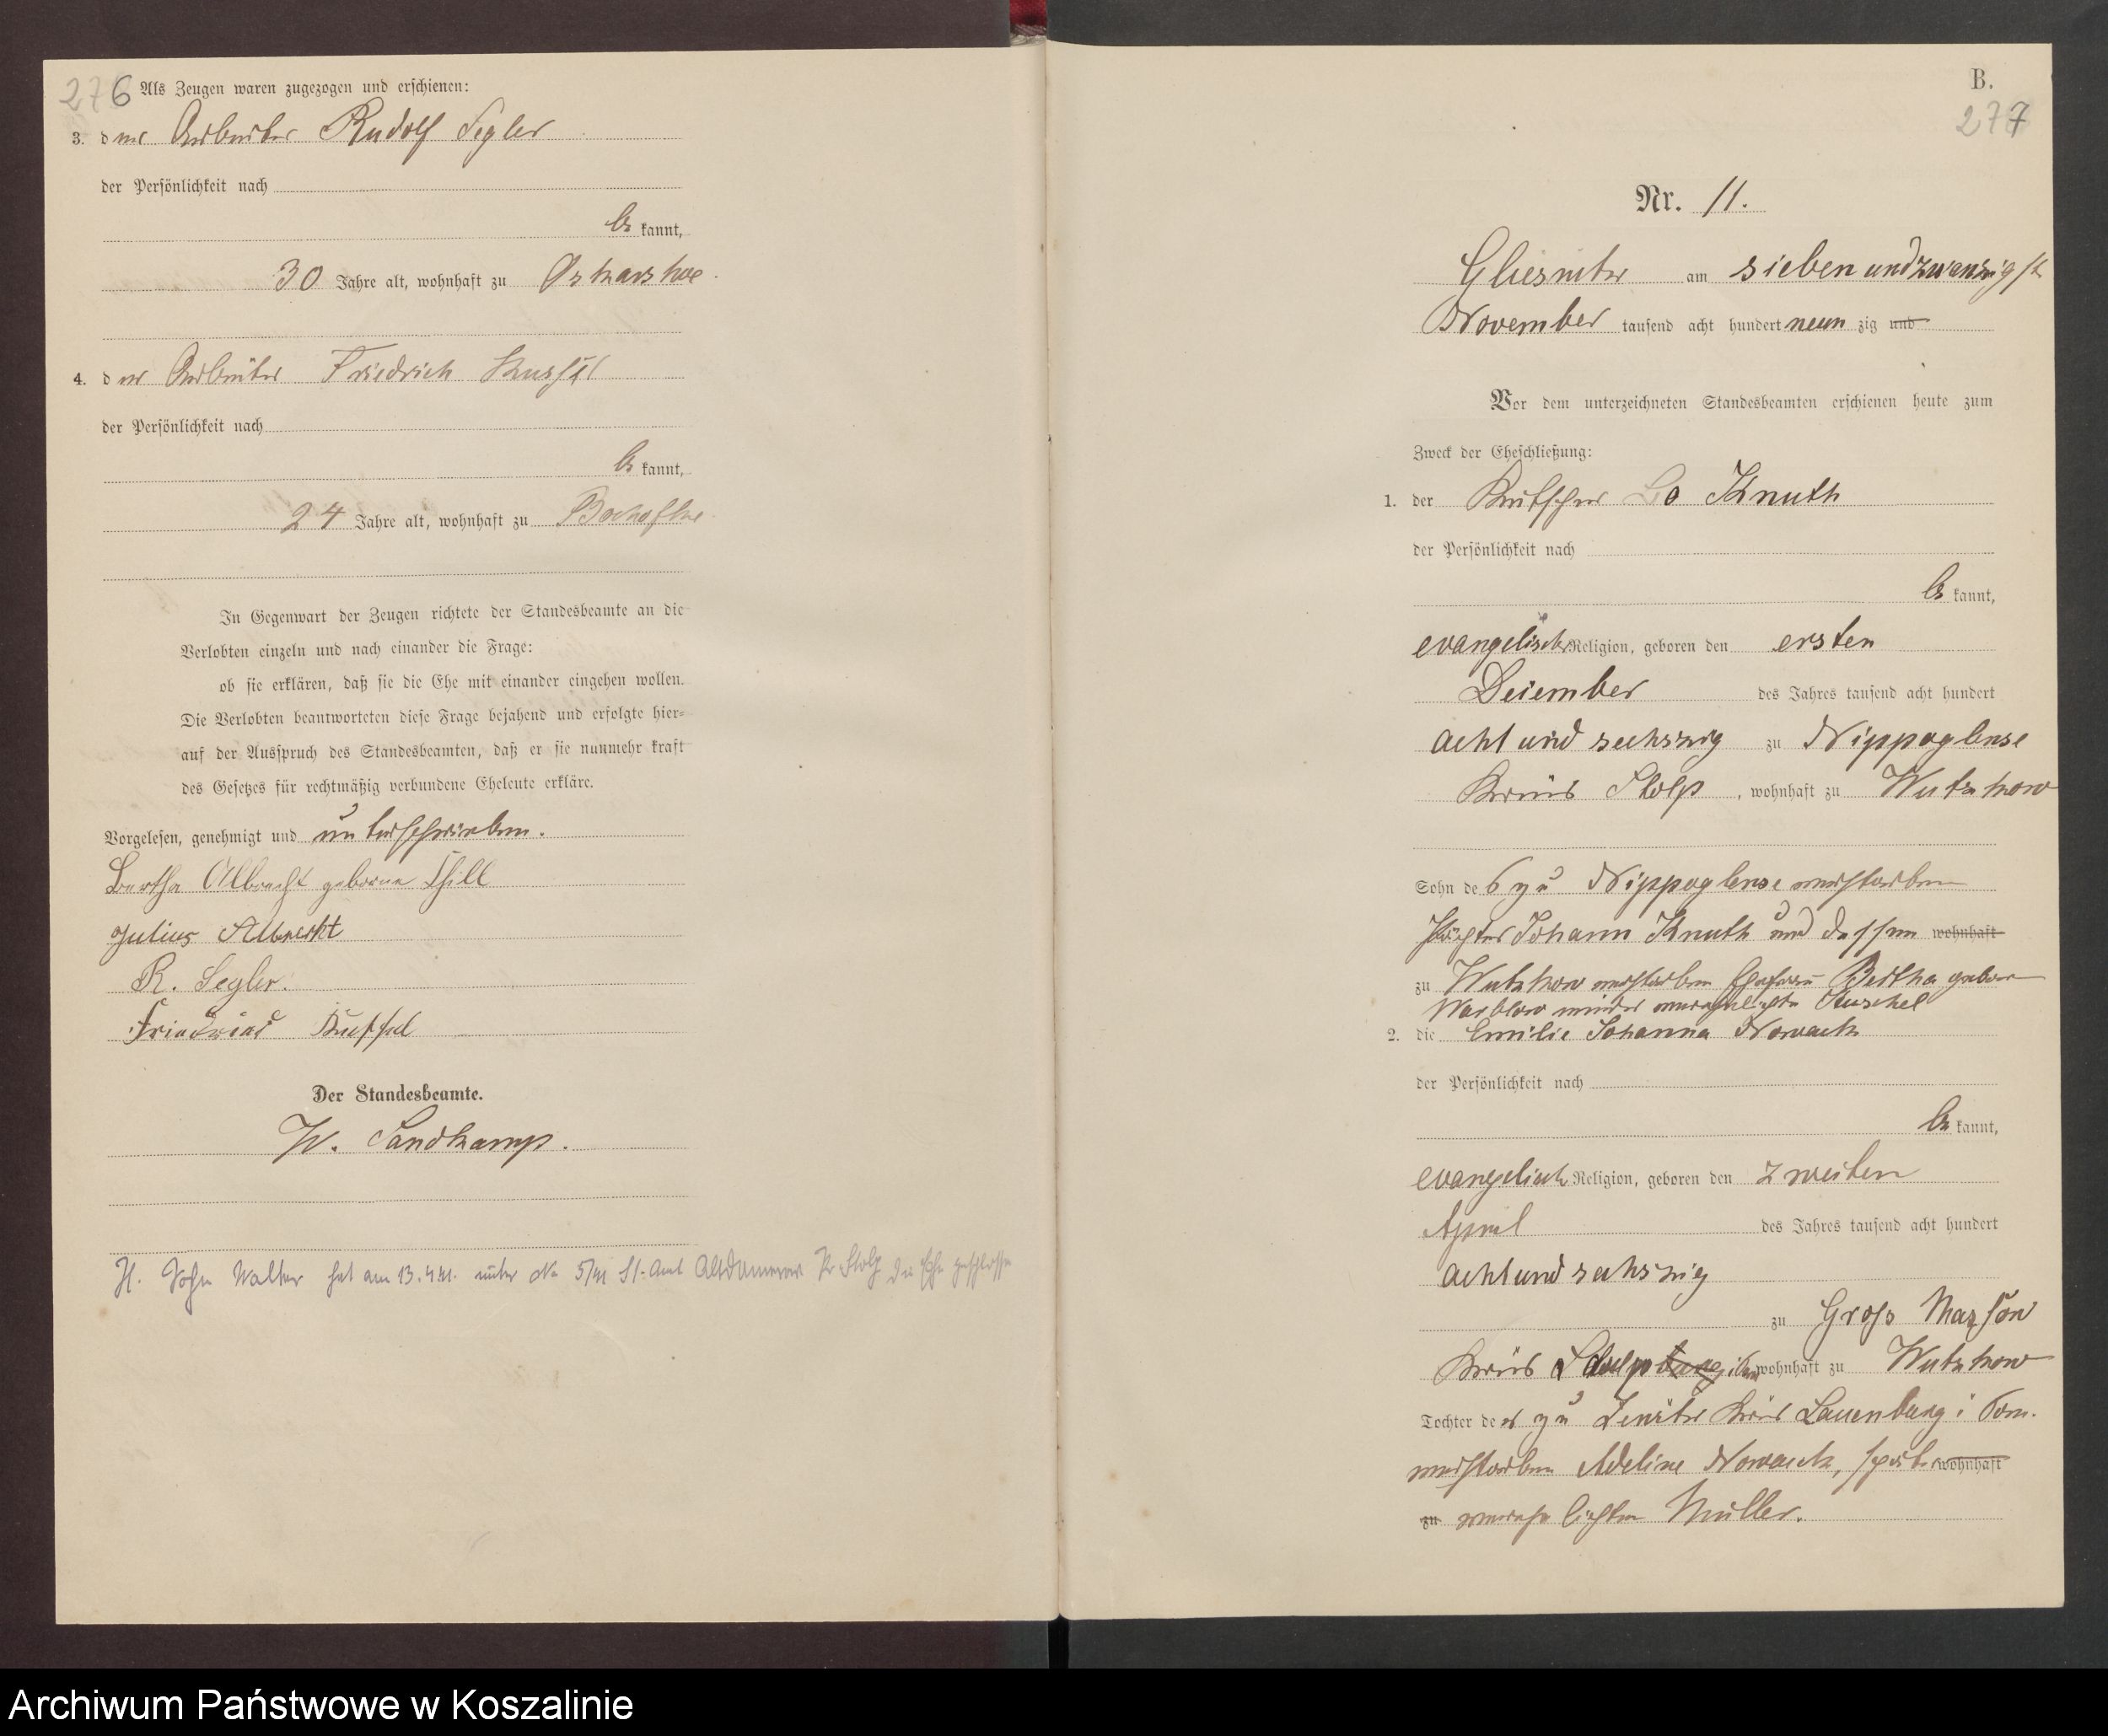 276
Als Zeugen waren zugezogen und erschienen:
3. der Arbeiter Rudolf Segler
der Persönlichkeit nach
be kannt,
30 Jahre alt, wohnhaft zu
4. der Arbeiter Friedrich
der Persönlichkeit nach
be kannt,
24 Jahre alt, wohnhaft zu
In Gegenwart der Zeugen richtete der Standesbeamte an die
Verlobten einzeln und nach einander die Frage:
ob sie erklären, daß sie die Ehe mit einander eingehen wollen.
Die Verlobten beantworteten diese Frage bejahend und erfolgte hier-
auf der Ausspruch des Standesbeamten, daß er sie nunmehr kraft
des Gesetzes für rechtmäßig verbundene Eheleute erkläre.
Vorgelesen, genehmigt und unterschrieben.
Bertha Albrecht geborene Thill
Julius Albrecht
R. Segler.
Der Standesbeamte.
W. Sandkamp.
H. Sohn Walter hat am 13.4.41. unter No 5/41 St. Amt Altdamerow Kr Stolp die Ehe geschlossen
B.
277
Nr. 11.
Gliesnitz am siebenundzwanzigst
November tausend acht hundert neun zig und
Vor dem unterzeichneten Standesbeamten erschienen heute zum
Zweck der Eheschließung:
1. der Kutscher Knuth
der Persönlichkeit nach
be kannt,
evangelischer Religion, geboren den ersten
Dezember des Jahres tausend acht hundert
acht und sechszig zu Nippoglense
Kreis Stolp, wohnhaft zu Wutzkow
Sohn des zu Nippoglense verstorbenen
Johann Knuth und dessen wohnhaft
zu Wutzkow verstorbenen Ehefrau Bertha geborenen
Warblow wieder verehelichte Kuschel
2. die Emilie Johanna Nowack
der Persönlichkeit nach
be kannt,
evangelisch Religion, geboren den zweiten
April des Jahres tausend acht hundert
achtundsechszig
zu Gross Massow
Kreis wohnhaft zu Wutzkow
Tochter der zu Kreis Lauenburg i Pom.
verstorbenen Adeline Nowack, später wohnhaft
zu verehelichten Müller.
Archiwum Państwowe w Koszalinie